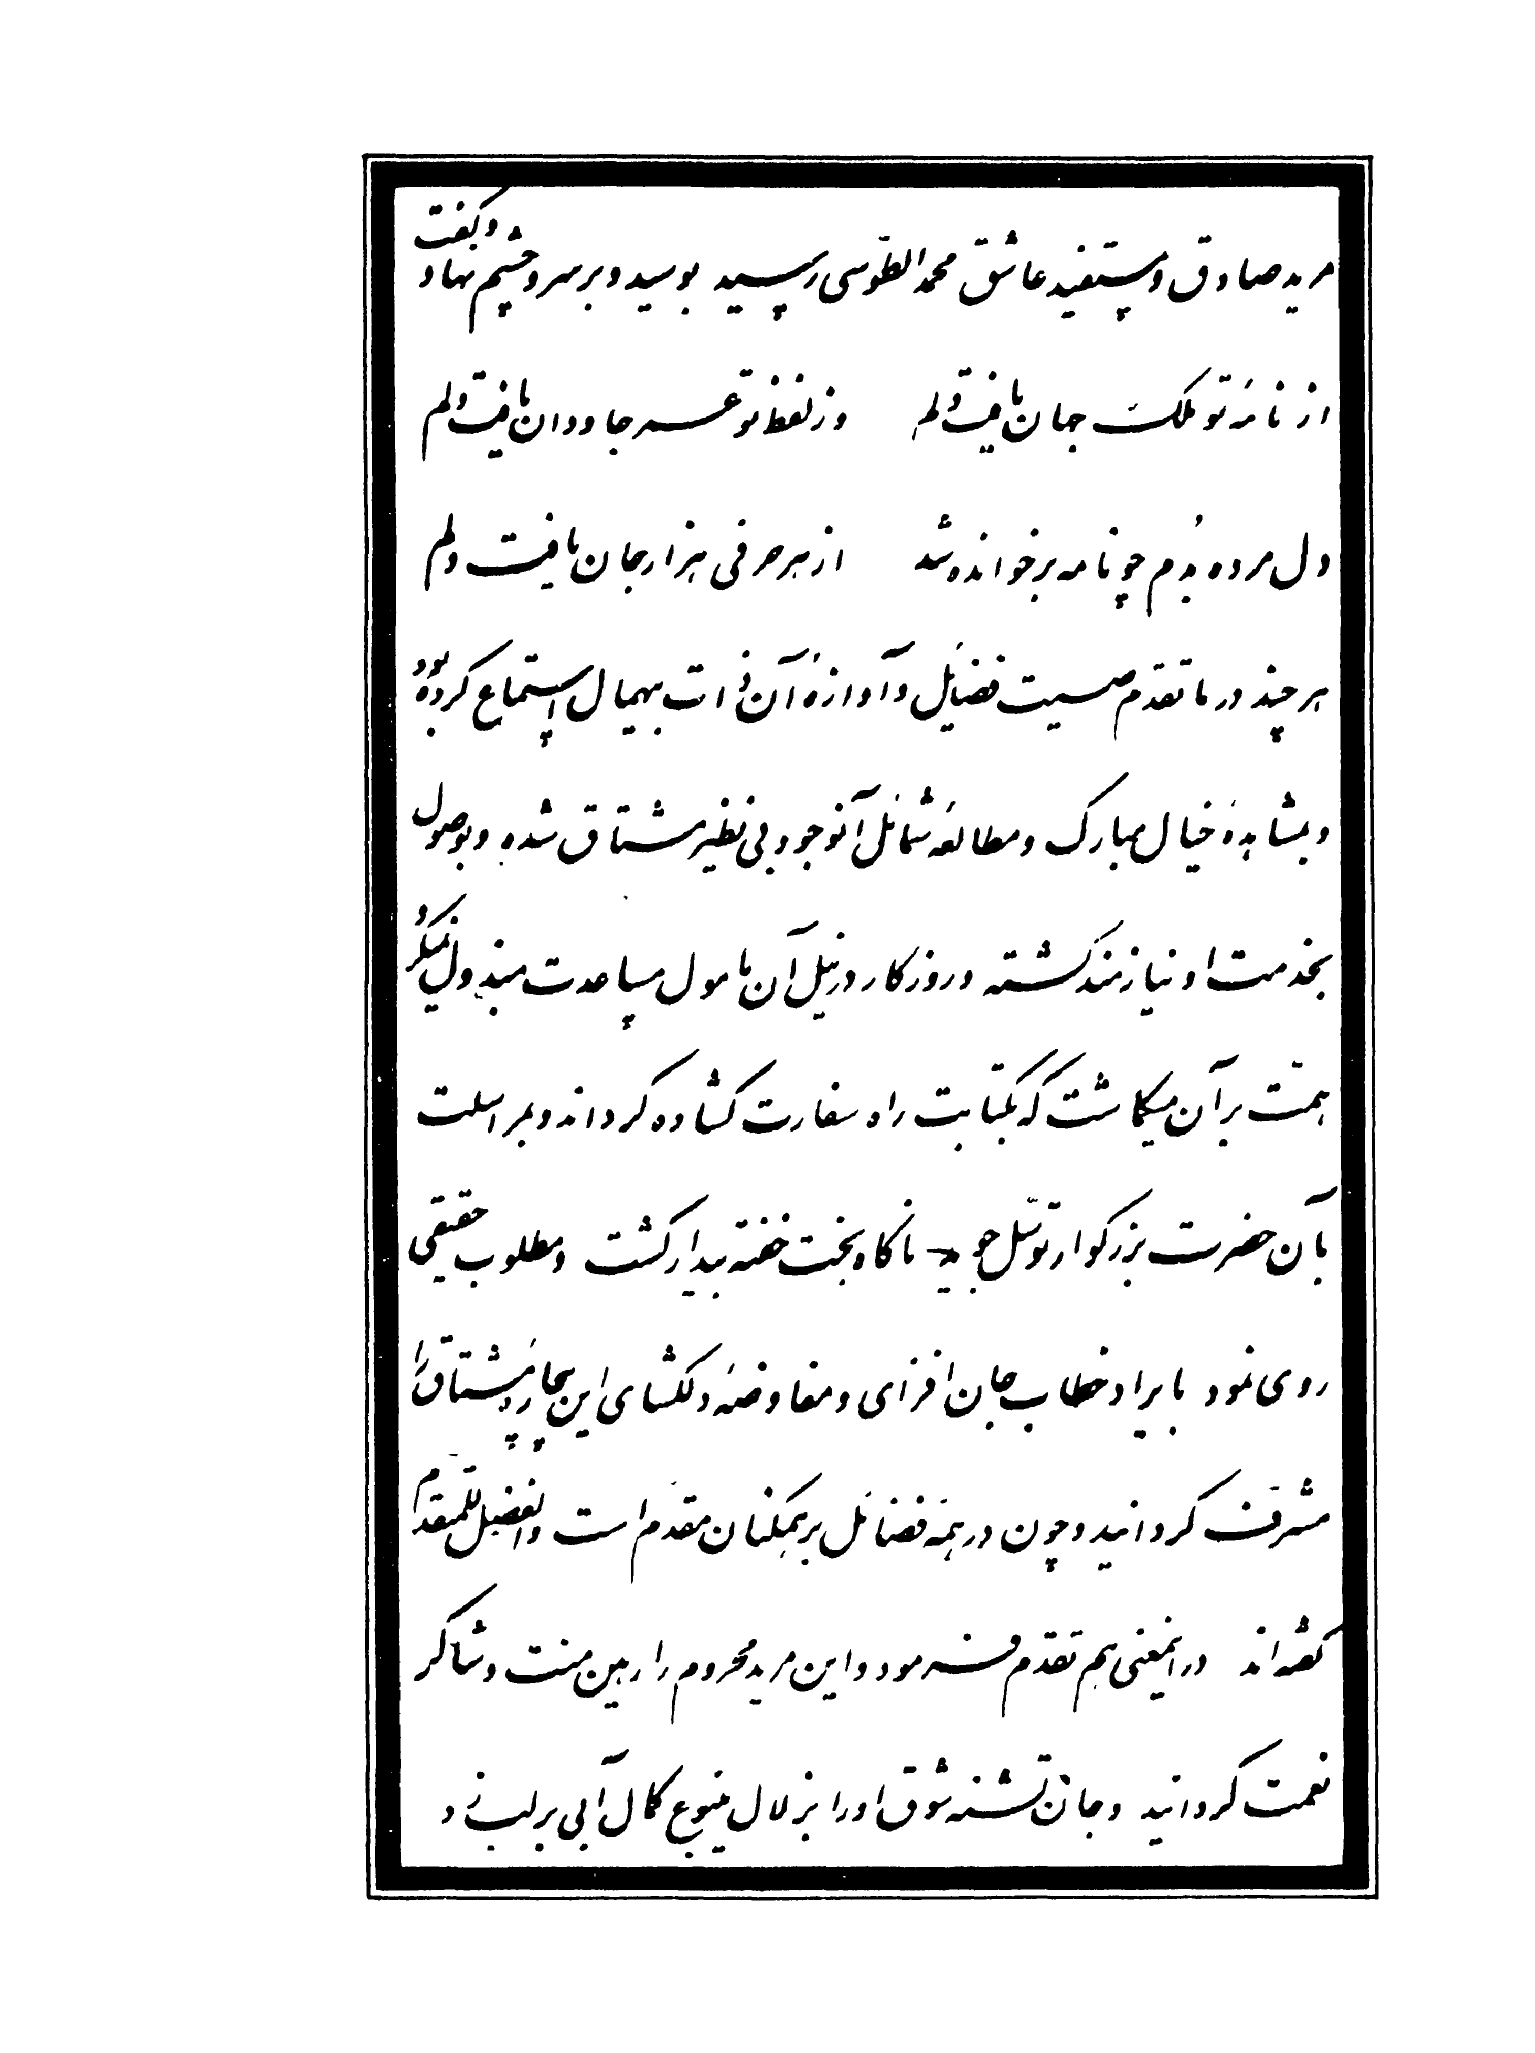 مرید صادق و مستفید عاشق محمد الطّوسی رسید بوسید و بر سر و چشم نهاد و بگفت
از نامهٔ تو ملکت جهان یافت دلم وز لفظ تو عمر جاودان یافت دلم
دل مرده بُدم چو نامه برخوانده شد از هر حرفی هزار جان یافت دلم
هر چند در ما تقدم صیت فضایل و آوازهٔ آن ذات بیهمال استماع کرده بود
و بمشاهدهٔ خیال مبارک و مطالعهٔ شمائل آنوجود بی نظیر مشتاق شده و بوصول
بخدمت او نیازمند گشته و روزگار در نیل آن مامول مساعدت مبذول نمیکرد و
همّت بر آن میگماشت که بکتابت راه سفارت گشاده گرداند و بمراسلت
بآن حضرت بزرگوار توسّل جوید ناگاه بخت خفته بیدار گشت و مطلوب حقیقی
روی نمود بایراد خطاب جان افزای و مفاوضهٔ دلگشای این بیچاره مشتاق را
مشرف گردانید و چون در همه فضائل بر همگنان مقدم است و الفضل للمتقدم
گفته‌اند در اینمعنی هم تقدم فرمود و این مرید محروم را رهین منت و شاکر
نعمت گردانید و جان تشنه شوق او را بزلال ینبوع کمال آبی بر لب زد